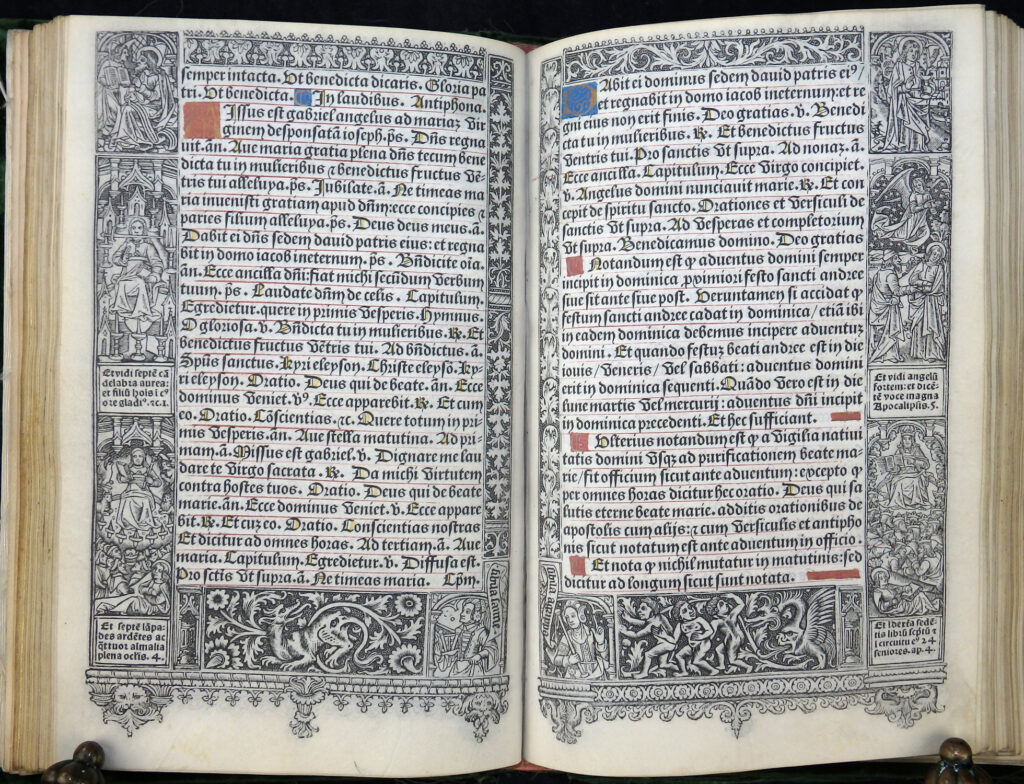 semper intacta. Ut benedicta dicaris. Gloria pa
tri. Ut benedicta. In laudibus. Antiphona.
Missus est gabriel angelus ad mariaz vir
ginem desponsatā ioseph. p̄s. Dñs regna
uit. ān. Aue maria gratia plena dñs tecum bene
dicta tu in mulieribus ⁊ benedictus fructus vē
tris tui alleluya. p̄s. Jubilate. ā. Ne timeas ma
ria inuenisti gratiam apud dñm: ecce concipies ⁊
paries filium alleluya. p̄s. Deus deus meus. ā.
Dabit ei dñs sedem dauid patris eius: et regna
bit in domo iacob ineternum. p̄s. Bñdicite oīa.
ān. Ecce ancilla dñi: fiat michi secūdum verbum
tuum. p̄s. Laudate dñm de celis. Capitulum.
Egredietur. quere in primis vesperis. Hymnus.
O gloriosa. v. Bñdicta tu in mulieribus. ℟. Et
benedictus fructus vētris tui. Ad bñdictus. ā.
Spūs sanctus. Kyri eleyson. Christe eleysō. Ky
ri eleyson. Oratio. Deus qui de beate. ān. Ecce
dominus veniet. v⁹. Ecce apparebit. ℟. Et cum
eo. Oratio. Cōscientias. ⁊c. Quere totum in pri
mis vesperis. ān. Aue stella matutina. Ad pri
mam. ā. Missus est gabriel. v. Dignare me lau
dare te virgo sacrata. ℟. Da michi virtutem
contra hostes tuos. Oratio. Deus qui de beate
marie. ān. Ecce dominus veniet. v. Ecce appare
bit. ℟. Et cuz eo. Oratio. Conscientias nostras
Et dicitur ad omnes horas. Ad tertiam. ā. Aue
maria. Capitulum. Egredietur. v. Diffusa est.
Pro sctis vt supra. ā. Ne timeas maria. Cpm.
Et vidi septē cā
delabra aurea:
et filiū hoīs ī e⁹
ore gladi⁹. ⁊c. 1.
Et septē lāpa
des ardētes ac
q̄ttuor aīmalia
plena oclīs. 4.
Dabit ei dominus sedem dauid patris ei⁹/
et regnabit in domo iacob ineternum: et re
gni eius non erit finis. Deo gratias. v. Benedi
cta tu in mulieribus. ℟. Et benedictus fructus
ventris tui. Pro sanctis vt supra. Ad nonaz. ā.
Ecce ancilla. Capitulum. Ecce virgo concipiet.
v. Angelus domini nunciauit marie. ℟. Et con
cepit de spiritu sancto. Orationes et versiculi de
sanctis vt supra. Ad vesperas et completorium
vt supra. Benedicamus domino. Deo gratias
Notandum est ꝙ aduentus domini semper
incipit in dominica ꝓximiori festo sancti andree
siue sit ante siue post. Veruntamen si accidat ꝙ
festum sancti andree cadat in dominica/etiā ibi
in eadem dominica debemus incipere aduentuz
domini. Et quando festuz beati andree est in die
iouis/veneris/vel sabbati: aduentus domini
erit in dominica sequenti. Quādo vero est in die
lune martis vel mercurii: aduentus dñi incipit
in dominica precedenti. Et hec sufficiant.
Ulterius notandum est ꝙ a vigilia natiui
tatis domini vsqz ad purificationem beate ma
rie/fit officium sicut ante aduentum: excepto ꝙ
per omnes horas dicitur hec oratio. Deus qui sa
lutis eterne beate marie. additis orationibus de
apostolis cum alijs: ⁊ cum versiculis et antipho
nis sicut notatum est ante aduentum in officio.
Et nota ꝙ nichil mutatur in matutinis: sed
dicitur ad longum sicut sunt notata.
Et vidi angelū
fortem: et dicē
tē voce magna
Apocalipsis. 5.
circuitu e⁹ 24
seniores. ap. 4.